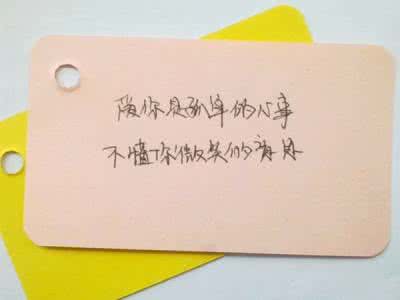 爱你是孤单的心事
不懂你微笑的意思